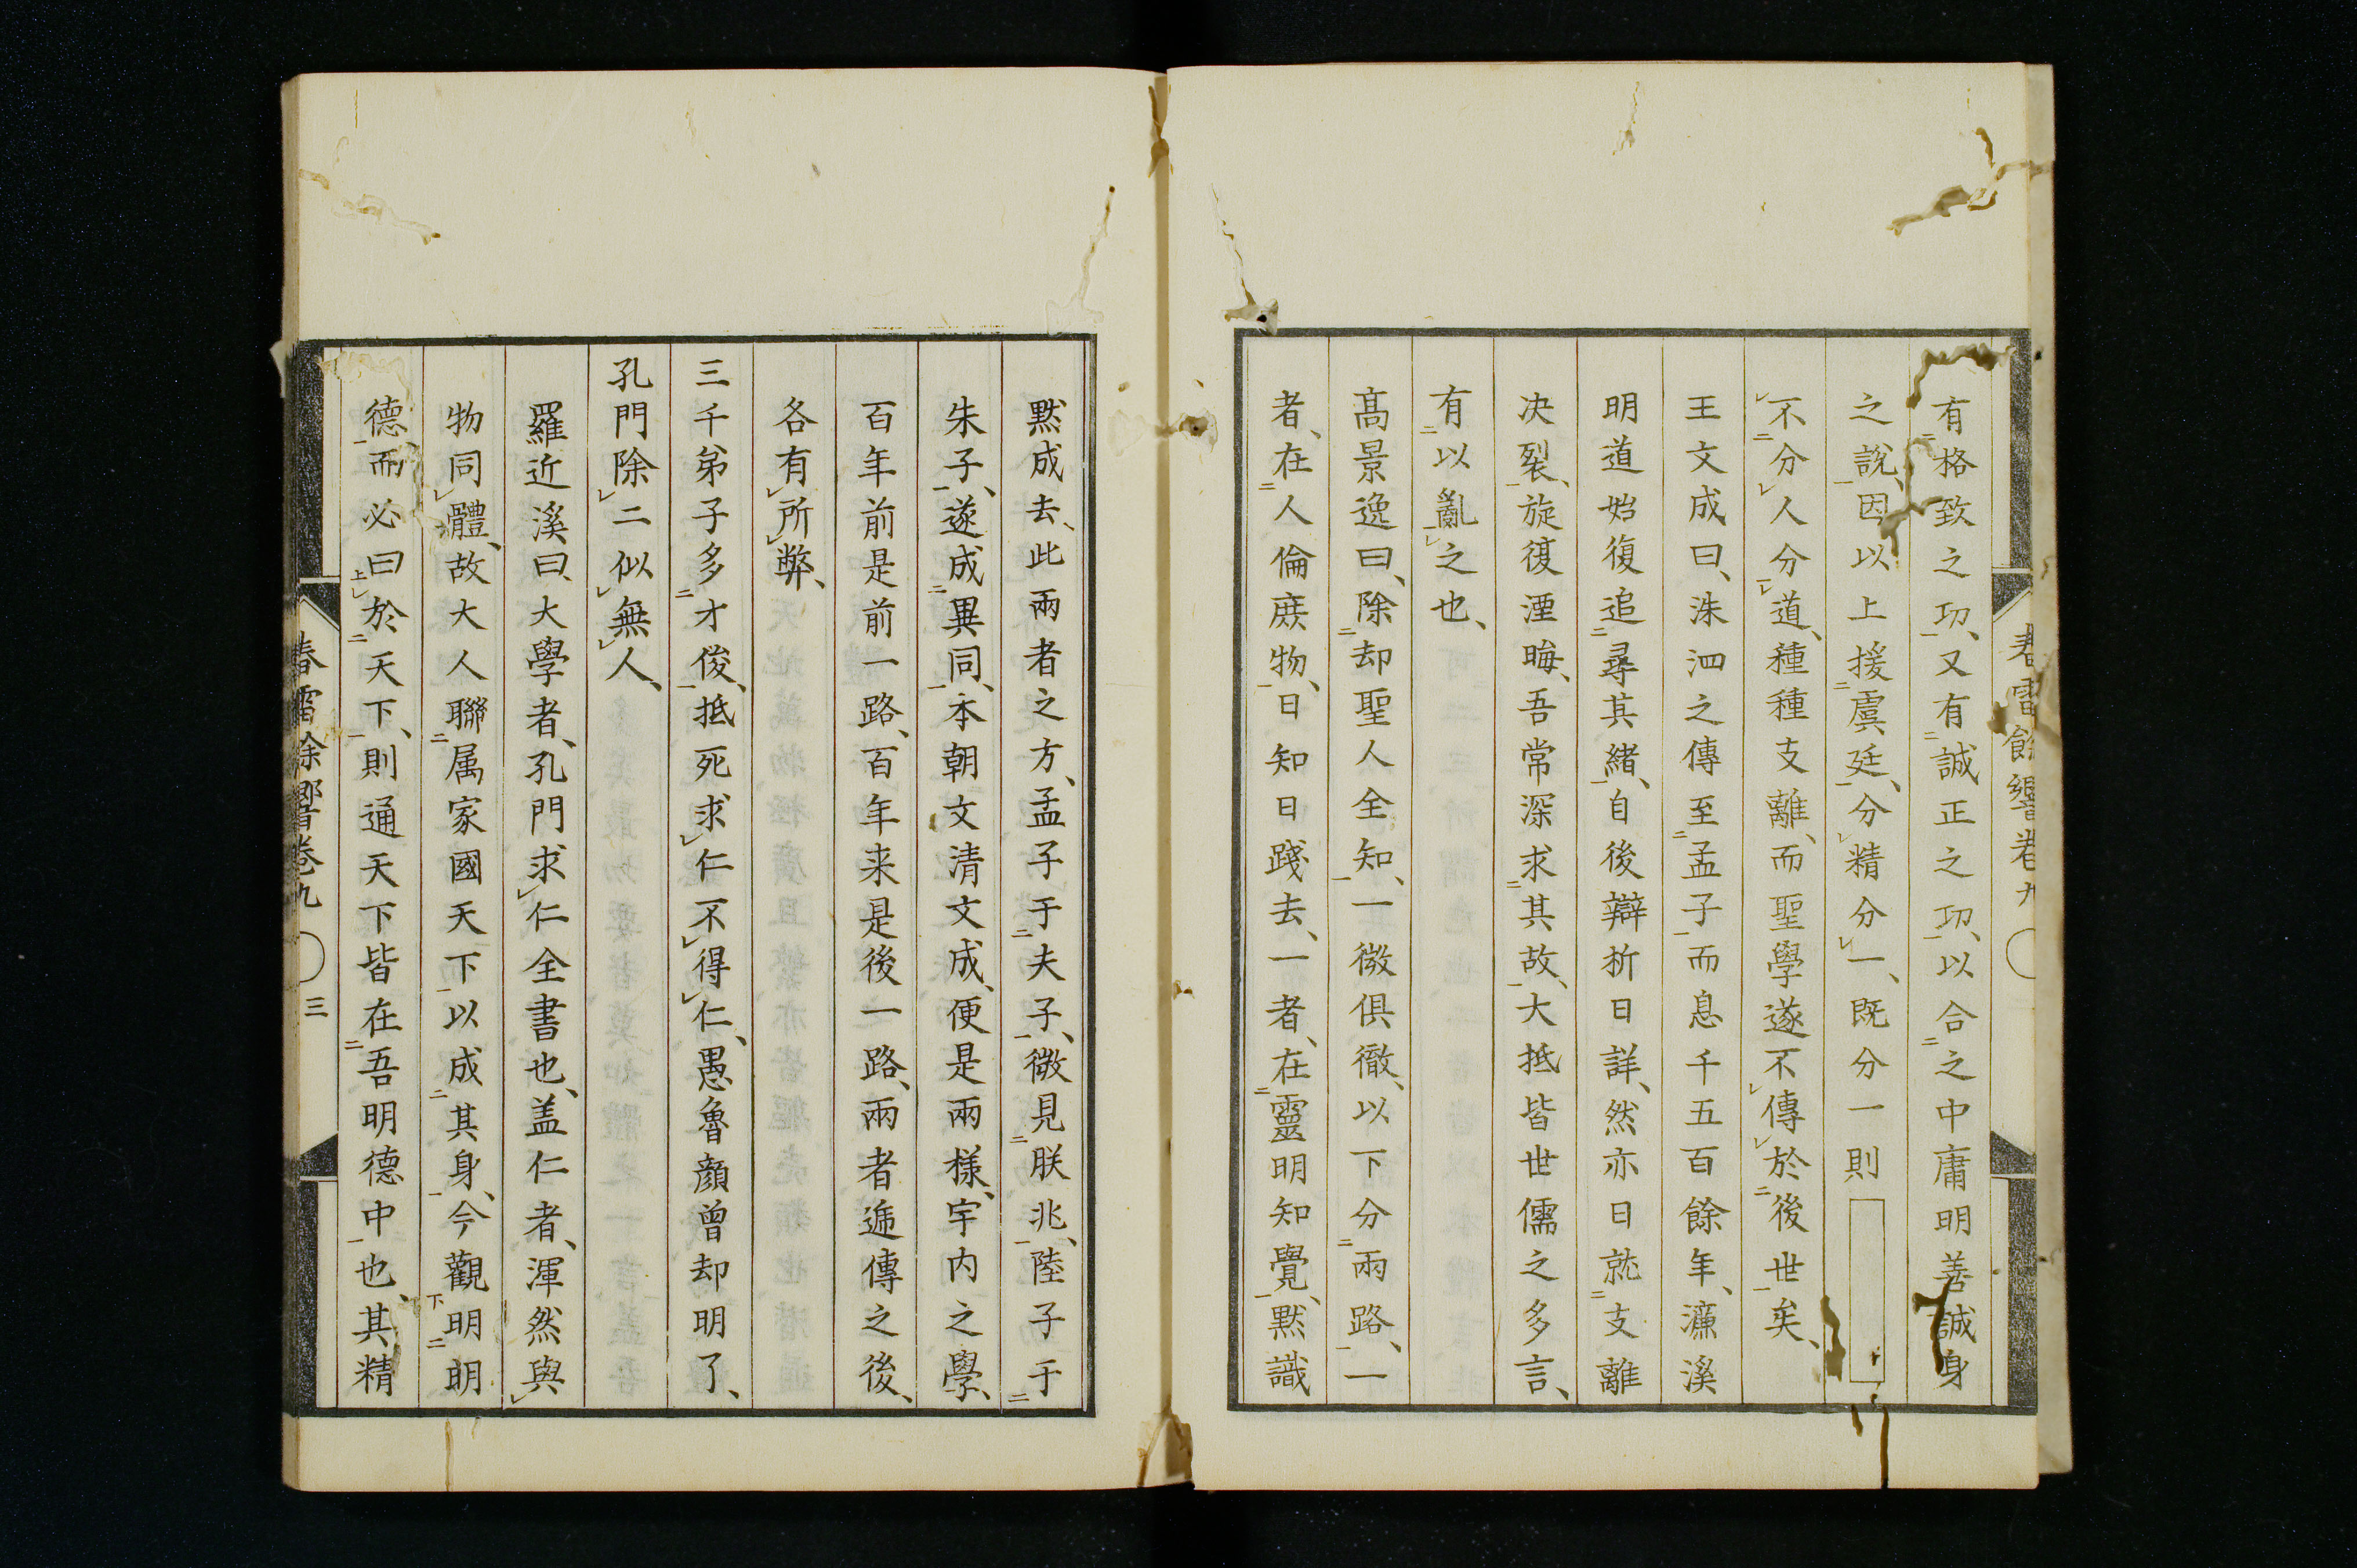 春雷餘響卷九
有格致之功、又有誠正之功、以合之中庸明善誠身
之說、因以上援虞廷、分精分一、既分一則
不分、人分道、種種支離、而聖學遂不傳於後世矣、
王文成曰、洙泗之傳至孟子而息千五百餘年、濂溪
明道始復追尋其緒、自後辯析日詳、然亦日就支離
决裂、旋復湮晦、吾常深求其故、大抵皆世儒之多言、
有以亂之也、
髙景逸曰、除却聖人全知、一徹俱徹、以下分兩路、一
者、在人倫庶物、日知日踐去、一者、在靈明知覺、默識
默成去、此兩者之方、孟子于夫子、微見朕兆、陸子于
朱子、遂成異同、本朝文清文成、便是兩樣、宇内之學、
百年前是前一路、百年来是後一路、兩者遞傳之後、
各有所弊、
三千弟子多才俊、抵死求仁不得仁、愚魯顔曾却明了、
孔門除二似無人、
羅近溪曰、大學者、孔門求仁全書也、盖仁者、渾然與
物同體、故大人聯属家國天下以成其身、今觀明明
德、而必曰於天下、則通天下皆在吾明德中也、其精
春雷餘響卷九
三